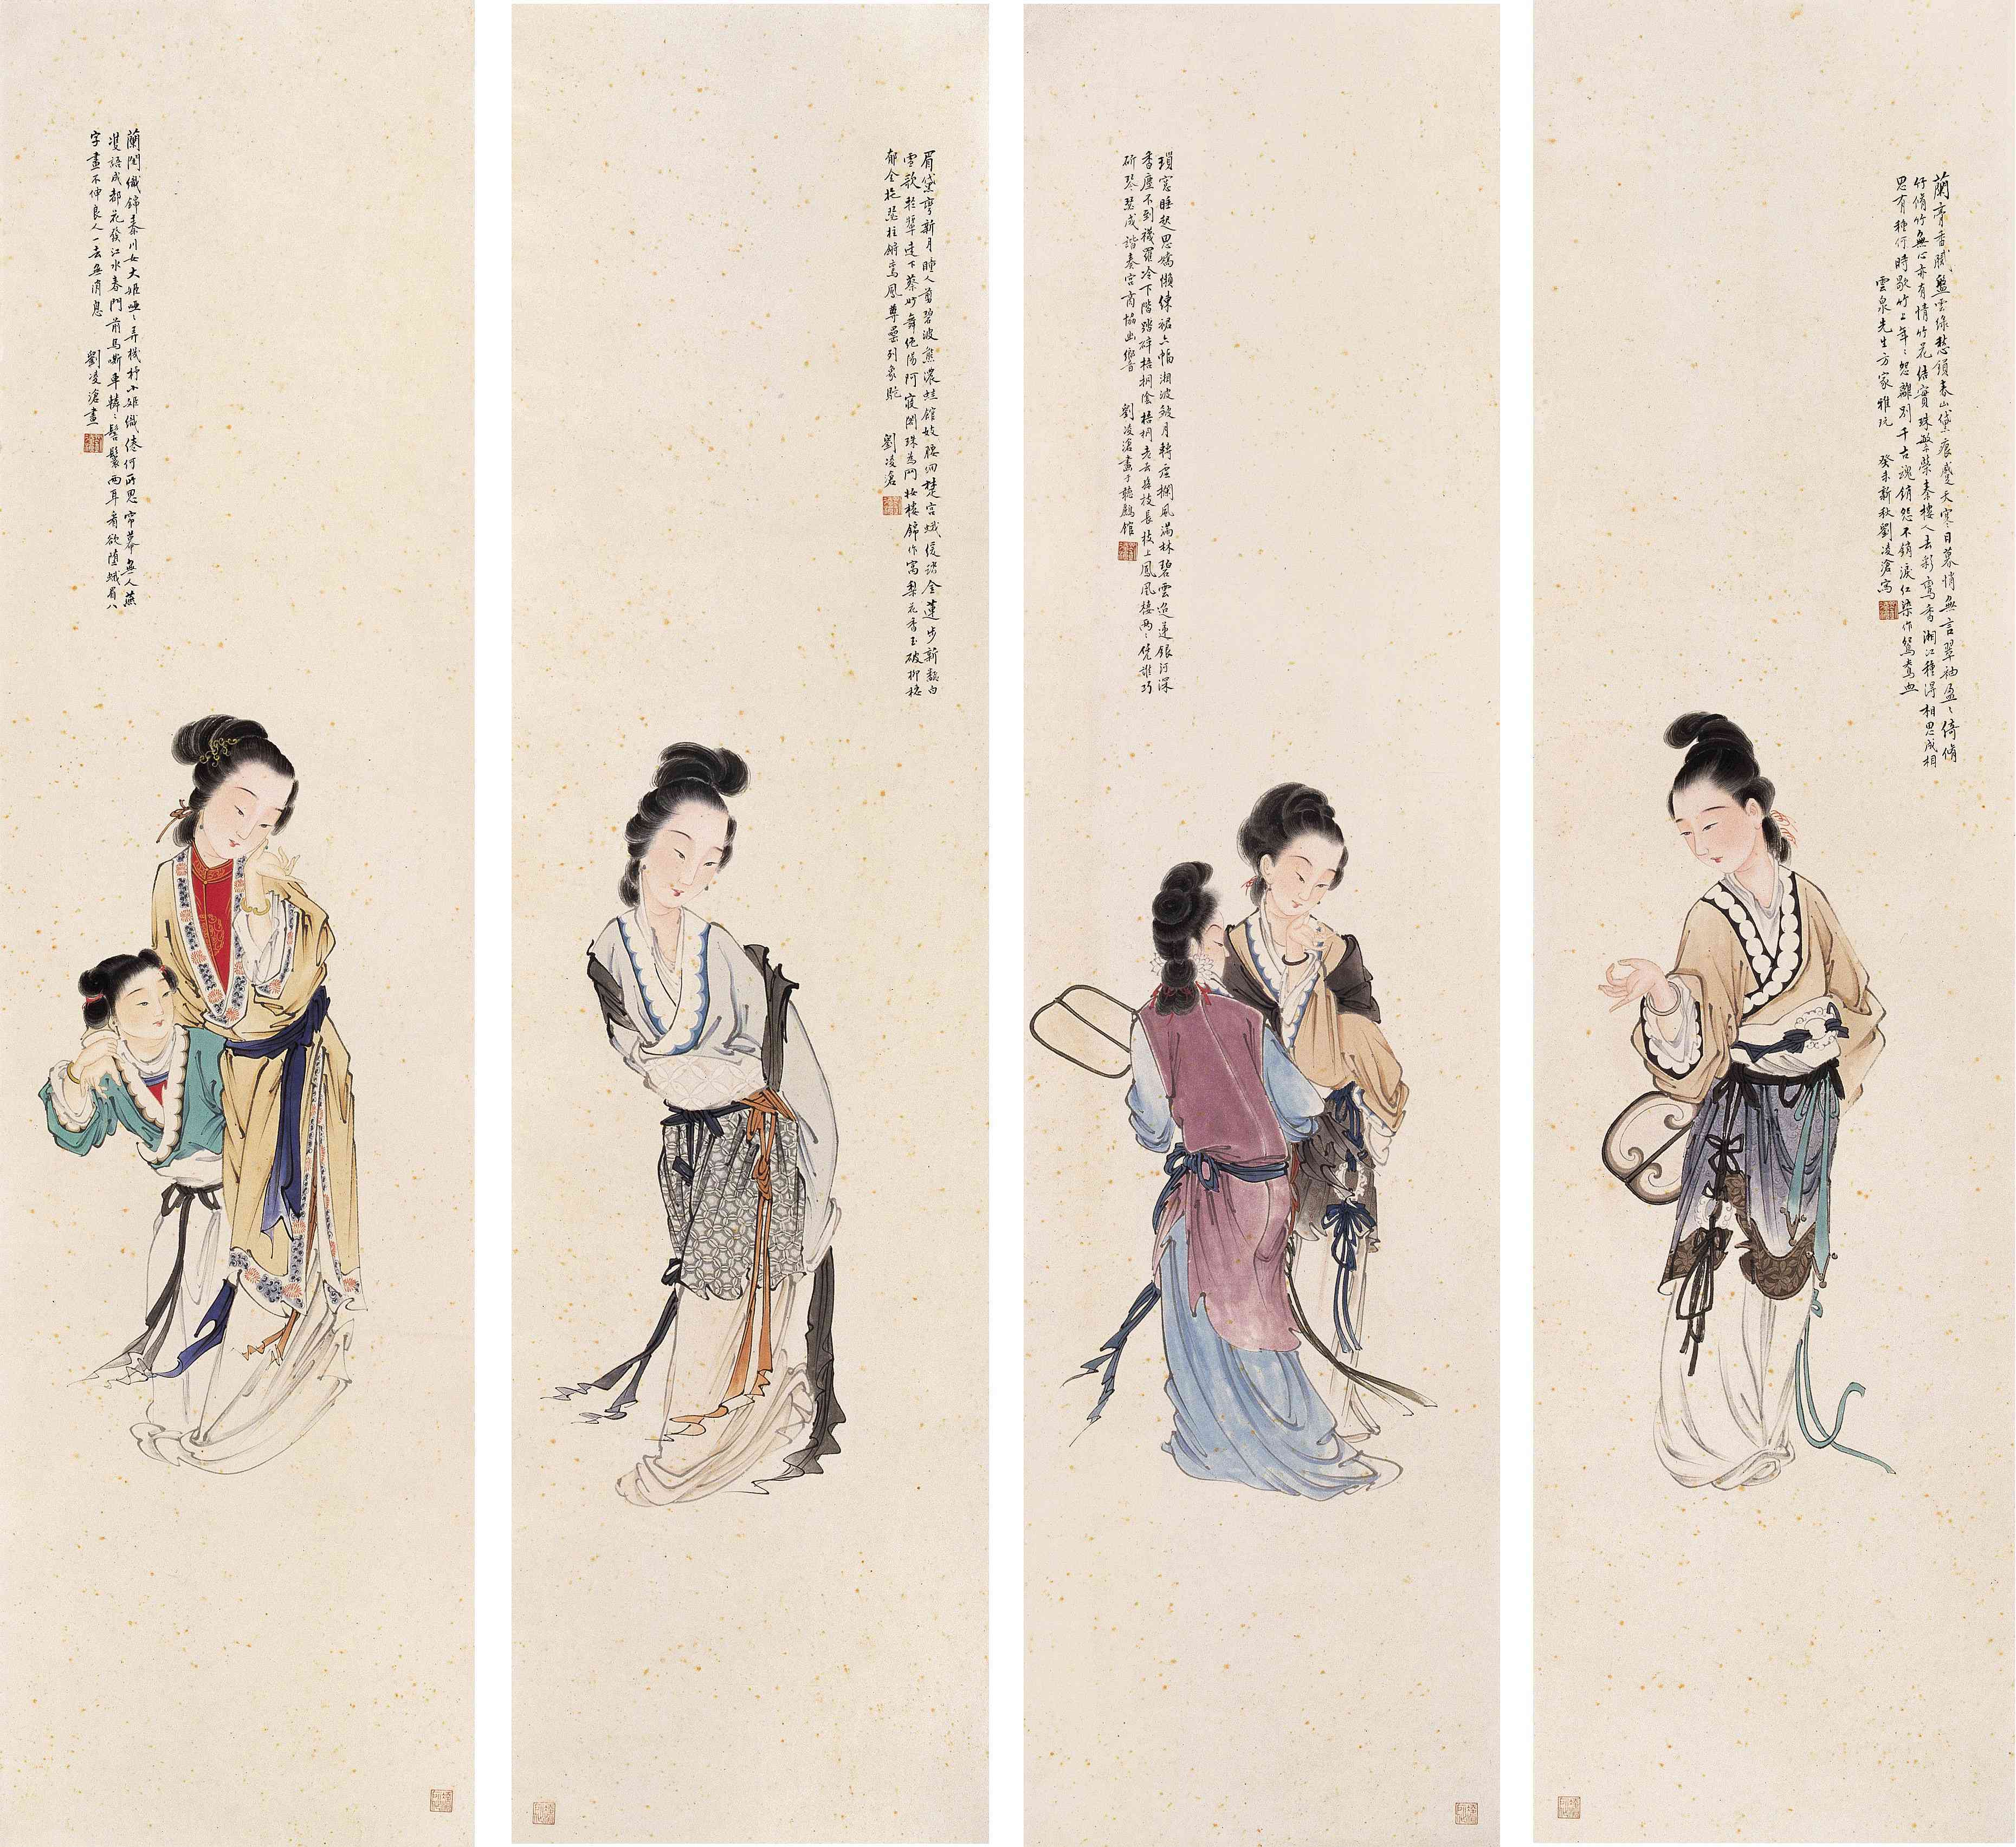 蘭膏香膩盤雲綠愁鎖春山黛痕蹙天寒日暮悄無言翠袖盈〻倚脩
竹脩竹無心亦有情竹花結實珠紫秦樓人去彩鸞杳湘江種得相思成相
思有種何時歇竹上年〻怨離別千古魂銷怨不銷淚紅染作鴛鴦血
雲泉先生方家雅玩 癸未新秋劉凌滄寫
瑣窗睡起思嬌懶練裙六幅湘波皺月軒虛擱風滿林碧雲迢遞銀河深
香塵不到襪羅冷下階踏碎梧桐陰梧桐老去孫枝長枝上鳳凰棲兩〻凭誰巧
斫琴瑟成諧奏宮商協幽響 劉凌滄畫于聽鸝館
眉黛彎新月瞳人剪碧波熏濃館妓腰細楚宮娥緩踏金蓮步新翻白
雪歌下蔡妙舞絕陽阿寢閣珠為網妝樓錦作窩梨花香玉破柳穗
郁金拖瑟柱鸞鳳尊罍列象駝 劉凌滄
蘭閨織錦秦川女大姬啞〻弄機杼小姬織倦何所思帘幕無人燕
雙語成都花發江水春門前馬嘶車轔〻髻鬟兩耳看欲墮蛾眉八
字畫不伸良人一去無消息 劉凌滄畫